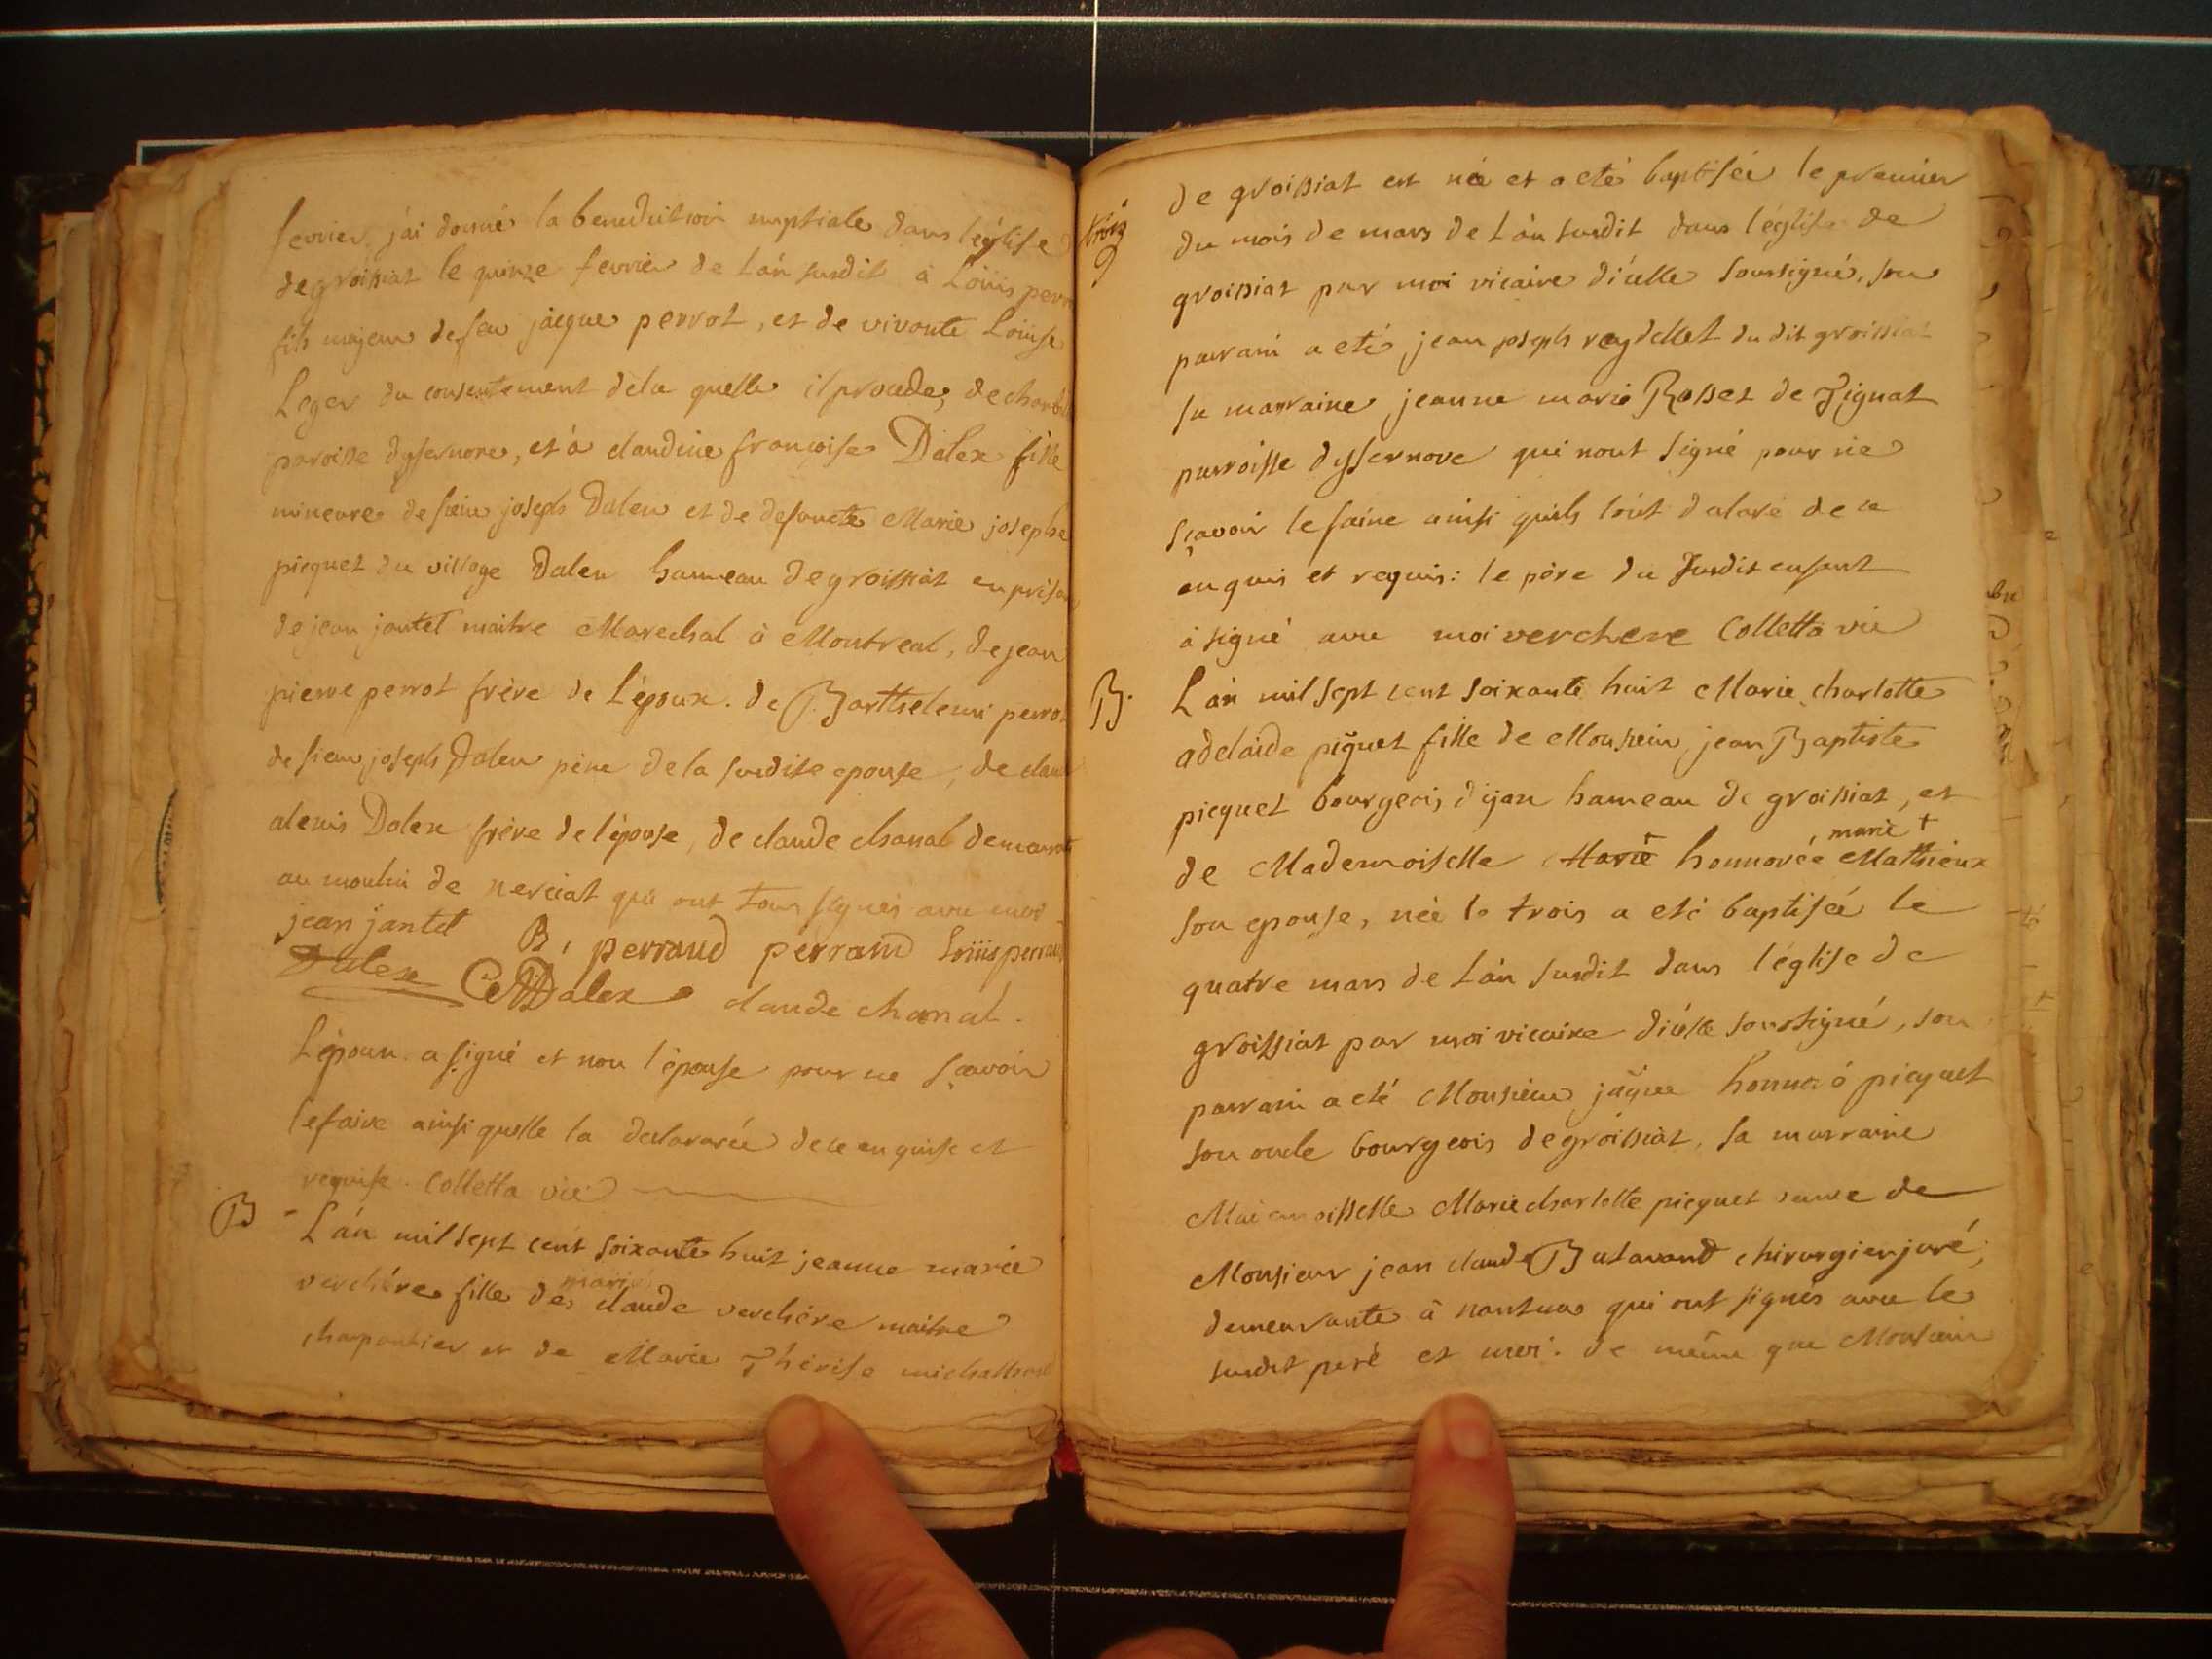 fevrier j'ai donné la beneduction nuptiale dans l'église
de groissiat le quinze fevrier de l'án susdit à Loüis perr
fils majeur de feu jàcque perrot, et de vivante Loüise
Leger du consentement de la quelle il procede, de charb
paroisse dysernore, et à claudine françoise Dalex fille
mineure de sieur joseph Dalex et de defuncte Marie josephe
picquet du village Dalex hameau de groissiàt en prése
de jean jantet maitre Marechal à Montreal, de jean
pierre perrot frère de L'époux. de Barthelemi perrot
de sieur joseph Dalex père de la susdite epouse, de claude
alexis Dalex frère de l'épouse, de claude chanal demeurant
au moulin de nerciat qui ont tous signés avec moi
jean jantet B, perraud perraud Loüis perraud
Dalex CADalex claude chanal.
L'époux a signé et non l'épouse pour ne sçavoir
le faire ainsi qu'elle la declararée de ce enquise et
requise. Colletta vic
B L'án mil sept cent soixante huit jeanne marie
marie
verchére fille de claude verchére maitre
charpentier et de Marie Thérèse michal
de groissiat est née et a eté baptisée le premier
trois
du mois de mars de l'án susdit dans l'église de
groissiat par moi vicaire d'icelle soussigné, son
parrain a eté jean joseph reydellet du dit groissiat
sa marraine jeanne marie Rosset de Tignat
parroisse dyssernore qui n'ont signé pour ne
sçavoir le faire ainsi quils l'ont declaré de ce
enquis et requis: le père du susdit enfant
à signé avec moi verchere Colletta vic
B. L'án mil sept cent soixante huit Marie charlotte
adelaide piquet fille de Monsieur jean Baptiste
picquet bourgeois d'ijan hameau de groissiat, et
marie +
de Mademoiselle Marie honnorée Mathieux
son epouse, née le trois a eté baptisée le
quatre mars de l'án susdit dans l'église de
groissiat par moi vicaire d'icelle soussigné, son
parrain a eté Monsieur jâque honnoré picquet
son oncle bourgeois de groissiat, sa marraine
Mademoisselle Marie charlotte picquet veuve de
Monsieur jean claude Butavand chirurgien juré,
demeurante à nantuas qui ont signés avec le
susdit peré et moi. de même que Monsieur